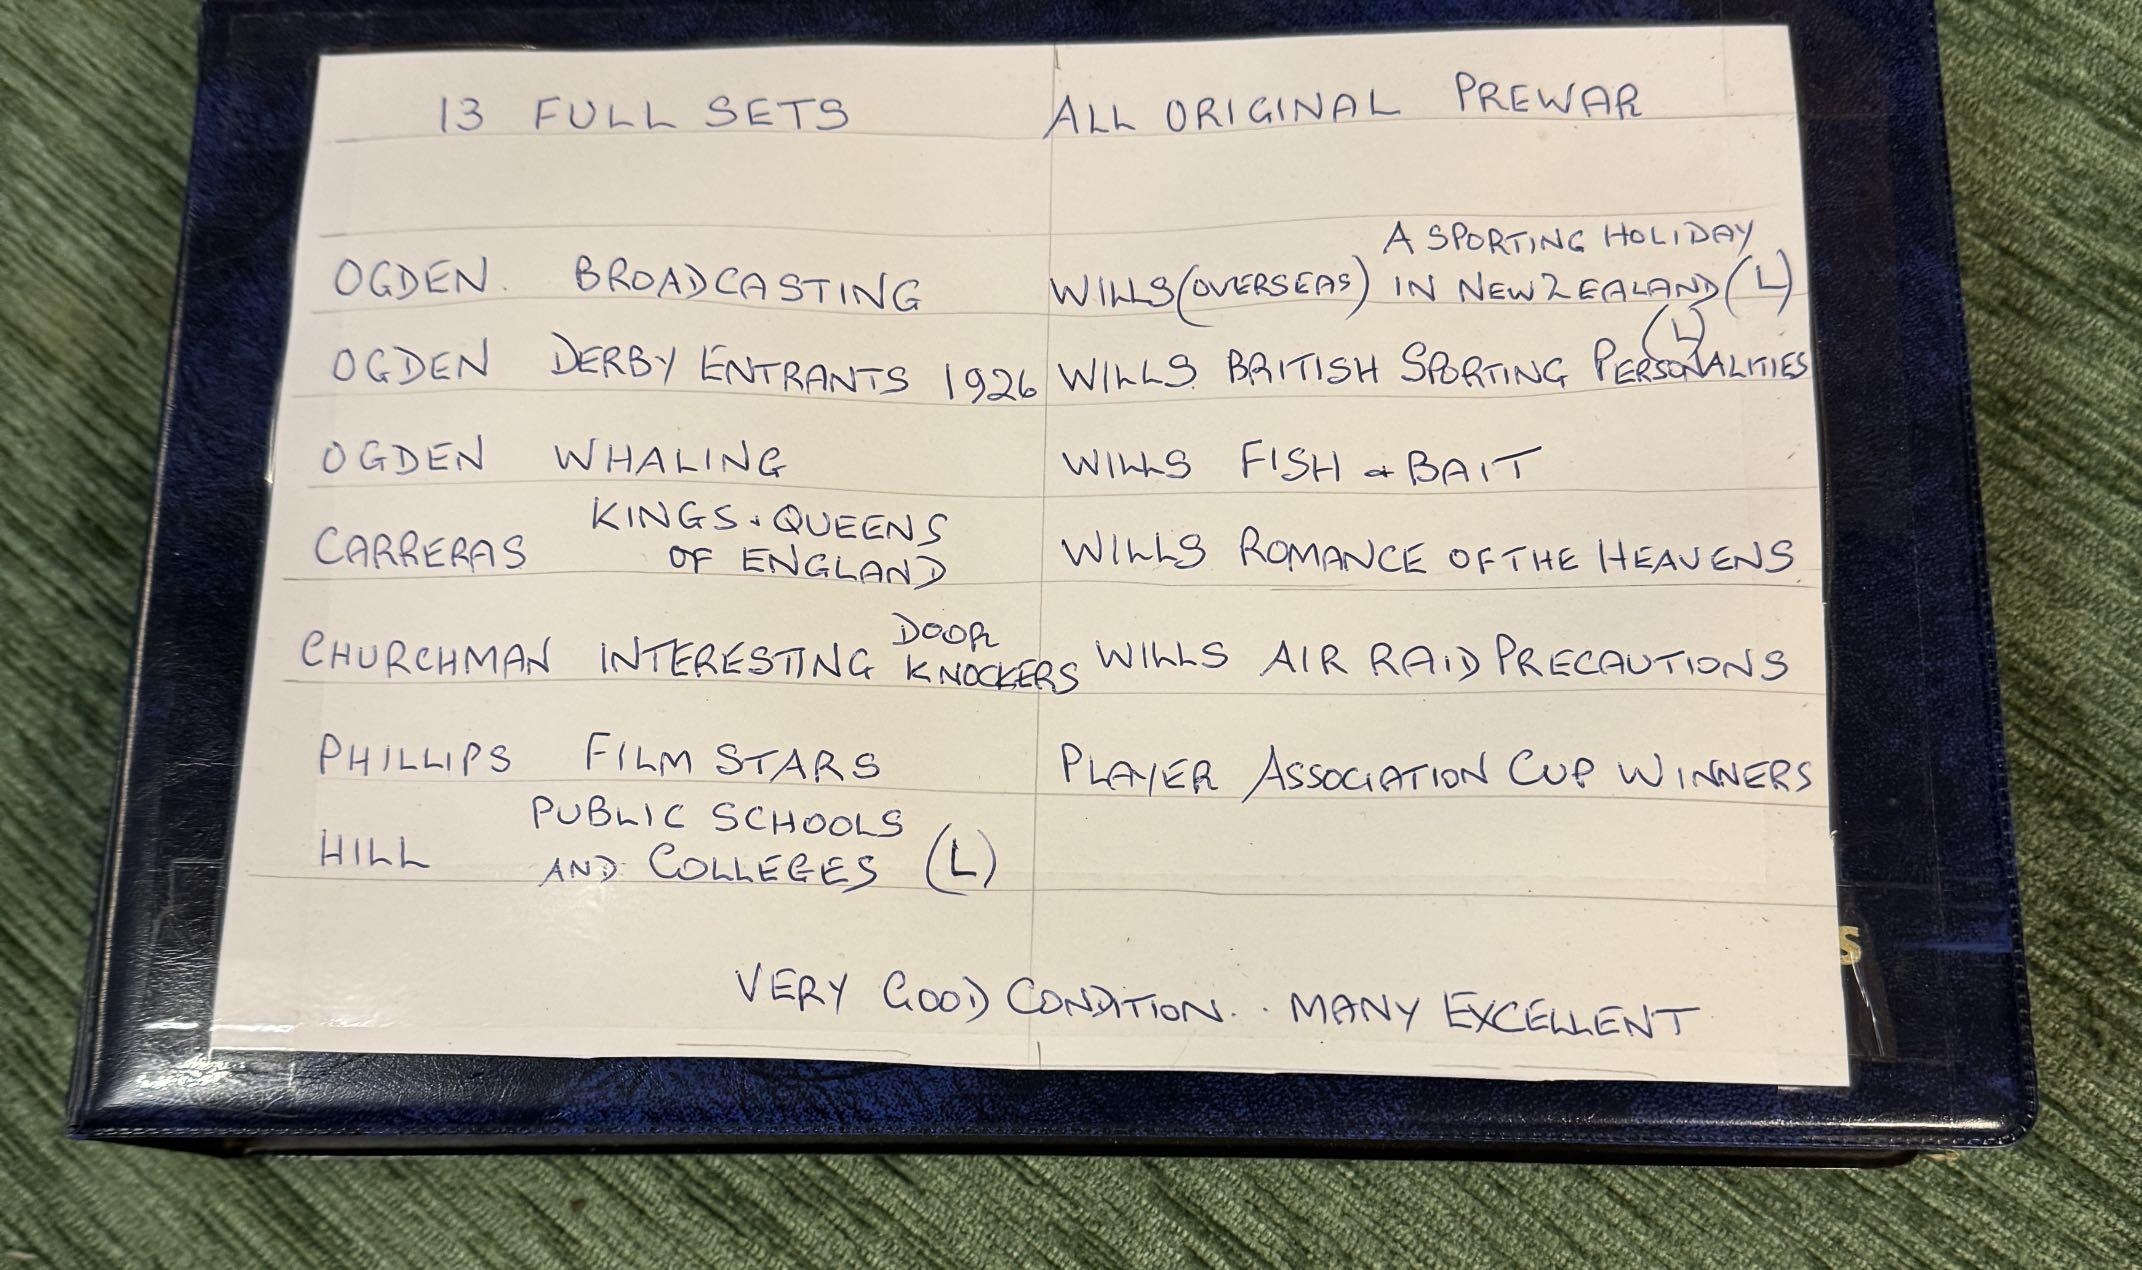 13 FULL SETS
ALL ORIGINAL PREWAR
OGDEN. BROADCASTING
OGDEN DERBY ENTRANTS 1926
OGDEN WHALING
CARRERAS KINGS & QUEENS
OF ENGLAND
CHURCHMAN INTERESTING DOOR
KNOCKERS
PHILLIPS FILM STARS
HILL PUBLIC SCHOOLS
AND COLLEGES (L)
A SPORTING HOLIDAY
WILLS (OVERSEAS) IN NEW ZEALAND (L)
(L)
WILLS BRITISH SPORTING PERSONALITIES
WILLS FISH & BAIT
WILLS ROMANCE OF THE HEAVENS
WILLS AIR RAID PRECAUTIONS
PLAYER ASSOCIATION CUP WINNERS
VERY GOOD CONDITION.. MANY EXCELLENT
S